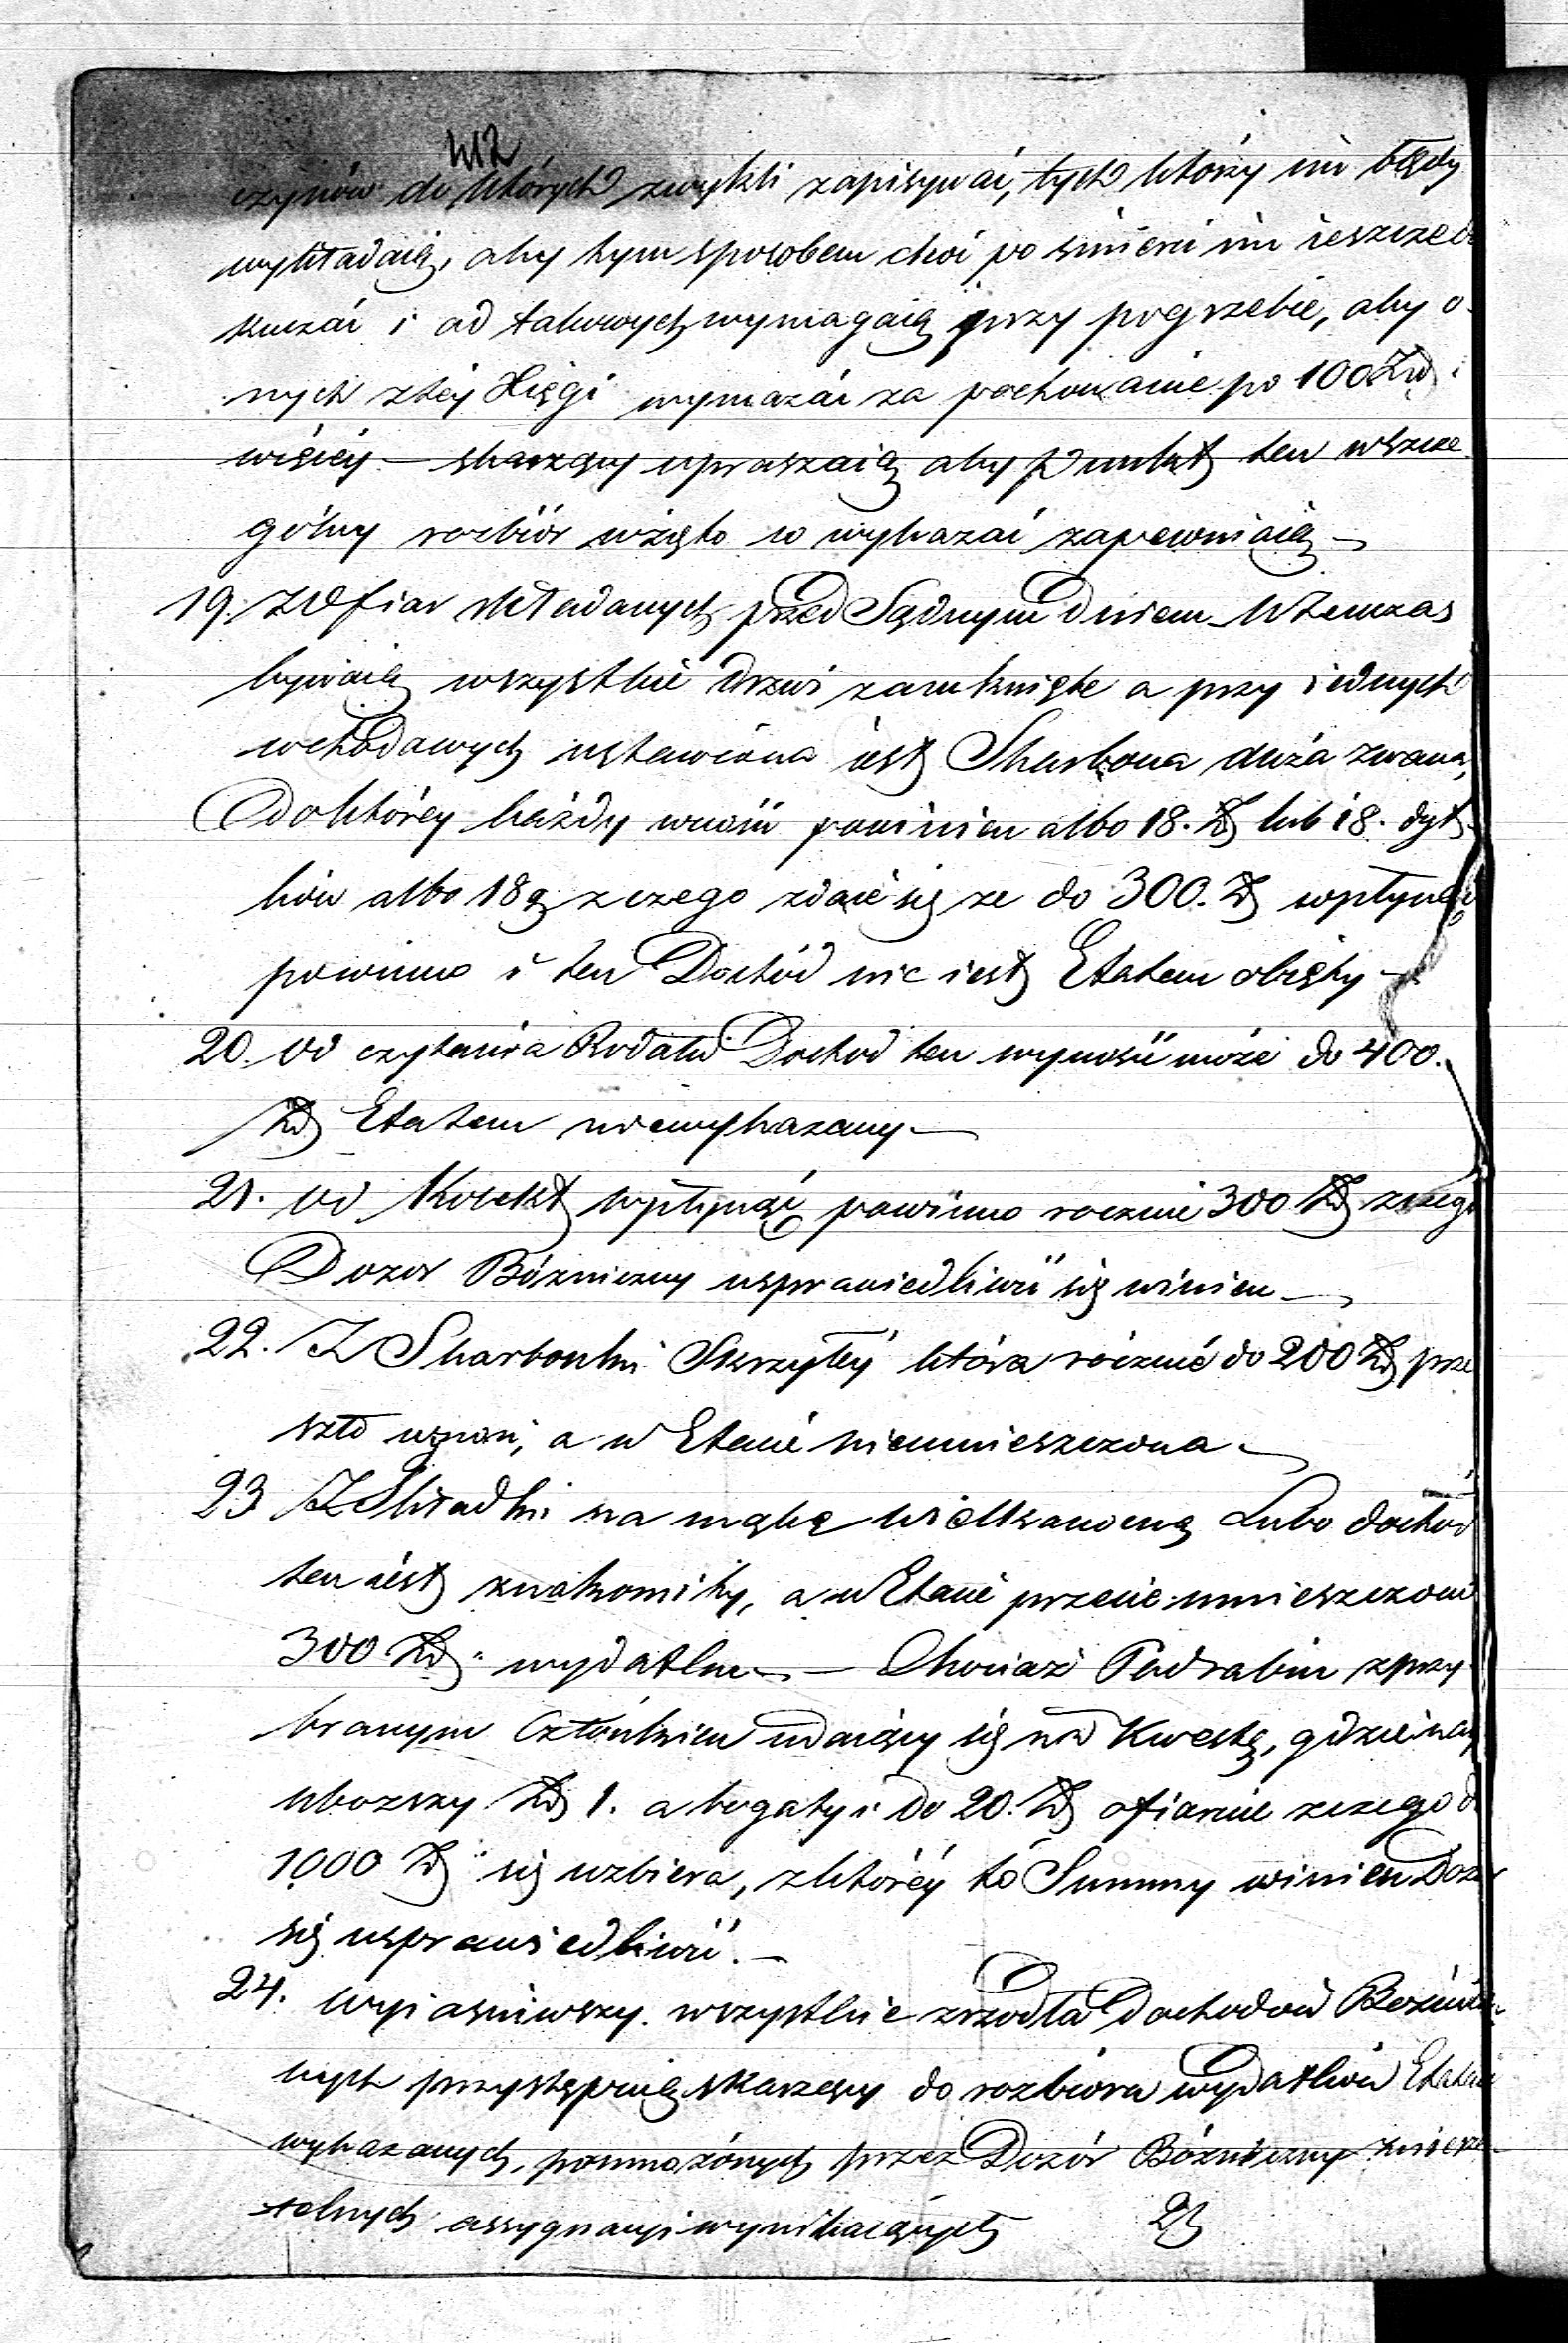 412
czynów do których zwykli zapisywać, tych którzy im błędy
wykładaią, aby tym sposobem choć po śmierci im ieszcze do
kuczać i od takowych wymagaią przy pogrzebie, aby o-
nych z téy Xięgi wymazać za pochowanie po 100 Zł i
więcéy — skarzący upraszaią aby Punkt ten w szcze
gólny rozbiór wzięto co wykazać zapewniaią —
19. Z Ofiar składanych przed Sądnym Dniem Wtenczas
bywaią wszystkie drzwi zamknięte a przy iednych
wchodowych ustawiona iest Skarbona duża zwana,
Do któréy każdy wnosić powinien albo 18. Zł lub 18. dyt
ków albo 18 g z czego zdaie się ze do 300. Zł wpłynąć
powinno i ten Dochód nie iest Etatem obięty —
20. od czytania Rodału Dochod ten wynosić może do 400.
Zł Etatem niewykazany —
21. od Kolekt wpłynąć powinno rocznie 300 Zł z czego
Dozor Bóżniczny usprawiedliwić się winien —
22. Z Skarbonki Skrzytéy która rocznie do 200 Zł prze
szło wynosi, a w Etacie nieumieszczona —
23 Z Składki na mąkę wielkanocną Lubo dochod
ten iest znakomity, a w Etacie przecie umieszczono
300 Zł wydatku — Chociaż Podrabin z przy
branym Członkiem udaiący się na Kwestę, gdzie nay
uboższy Zł 1. a bogatyi do 20. Zł ofiaruie z czego do
1000 Zł się uzbiera, z któréy to Summy winien Dozor
się usprawiedliwić. —
24. Wyiaśniwszy wszystkie zrzodła Dochodów Bożnicz
nych przystępuią skarzący do rozbioru wydatków Etatem
wykazanych, pomnożónych przez Dozór Bóżniczny z nierze
telnych assygnacyi wynikaiących